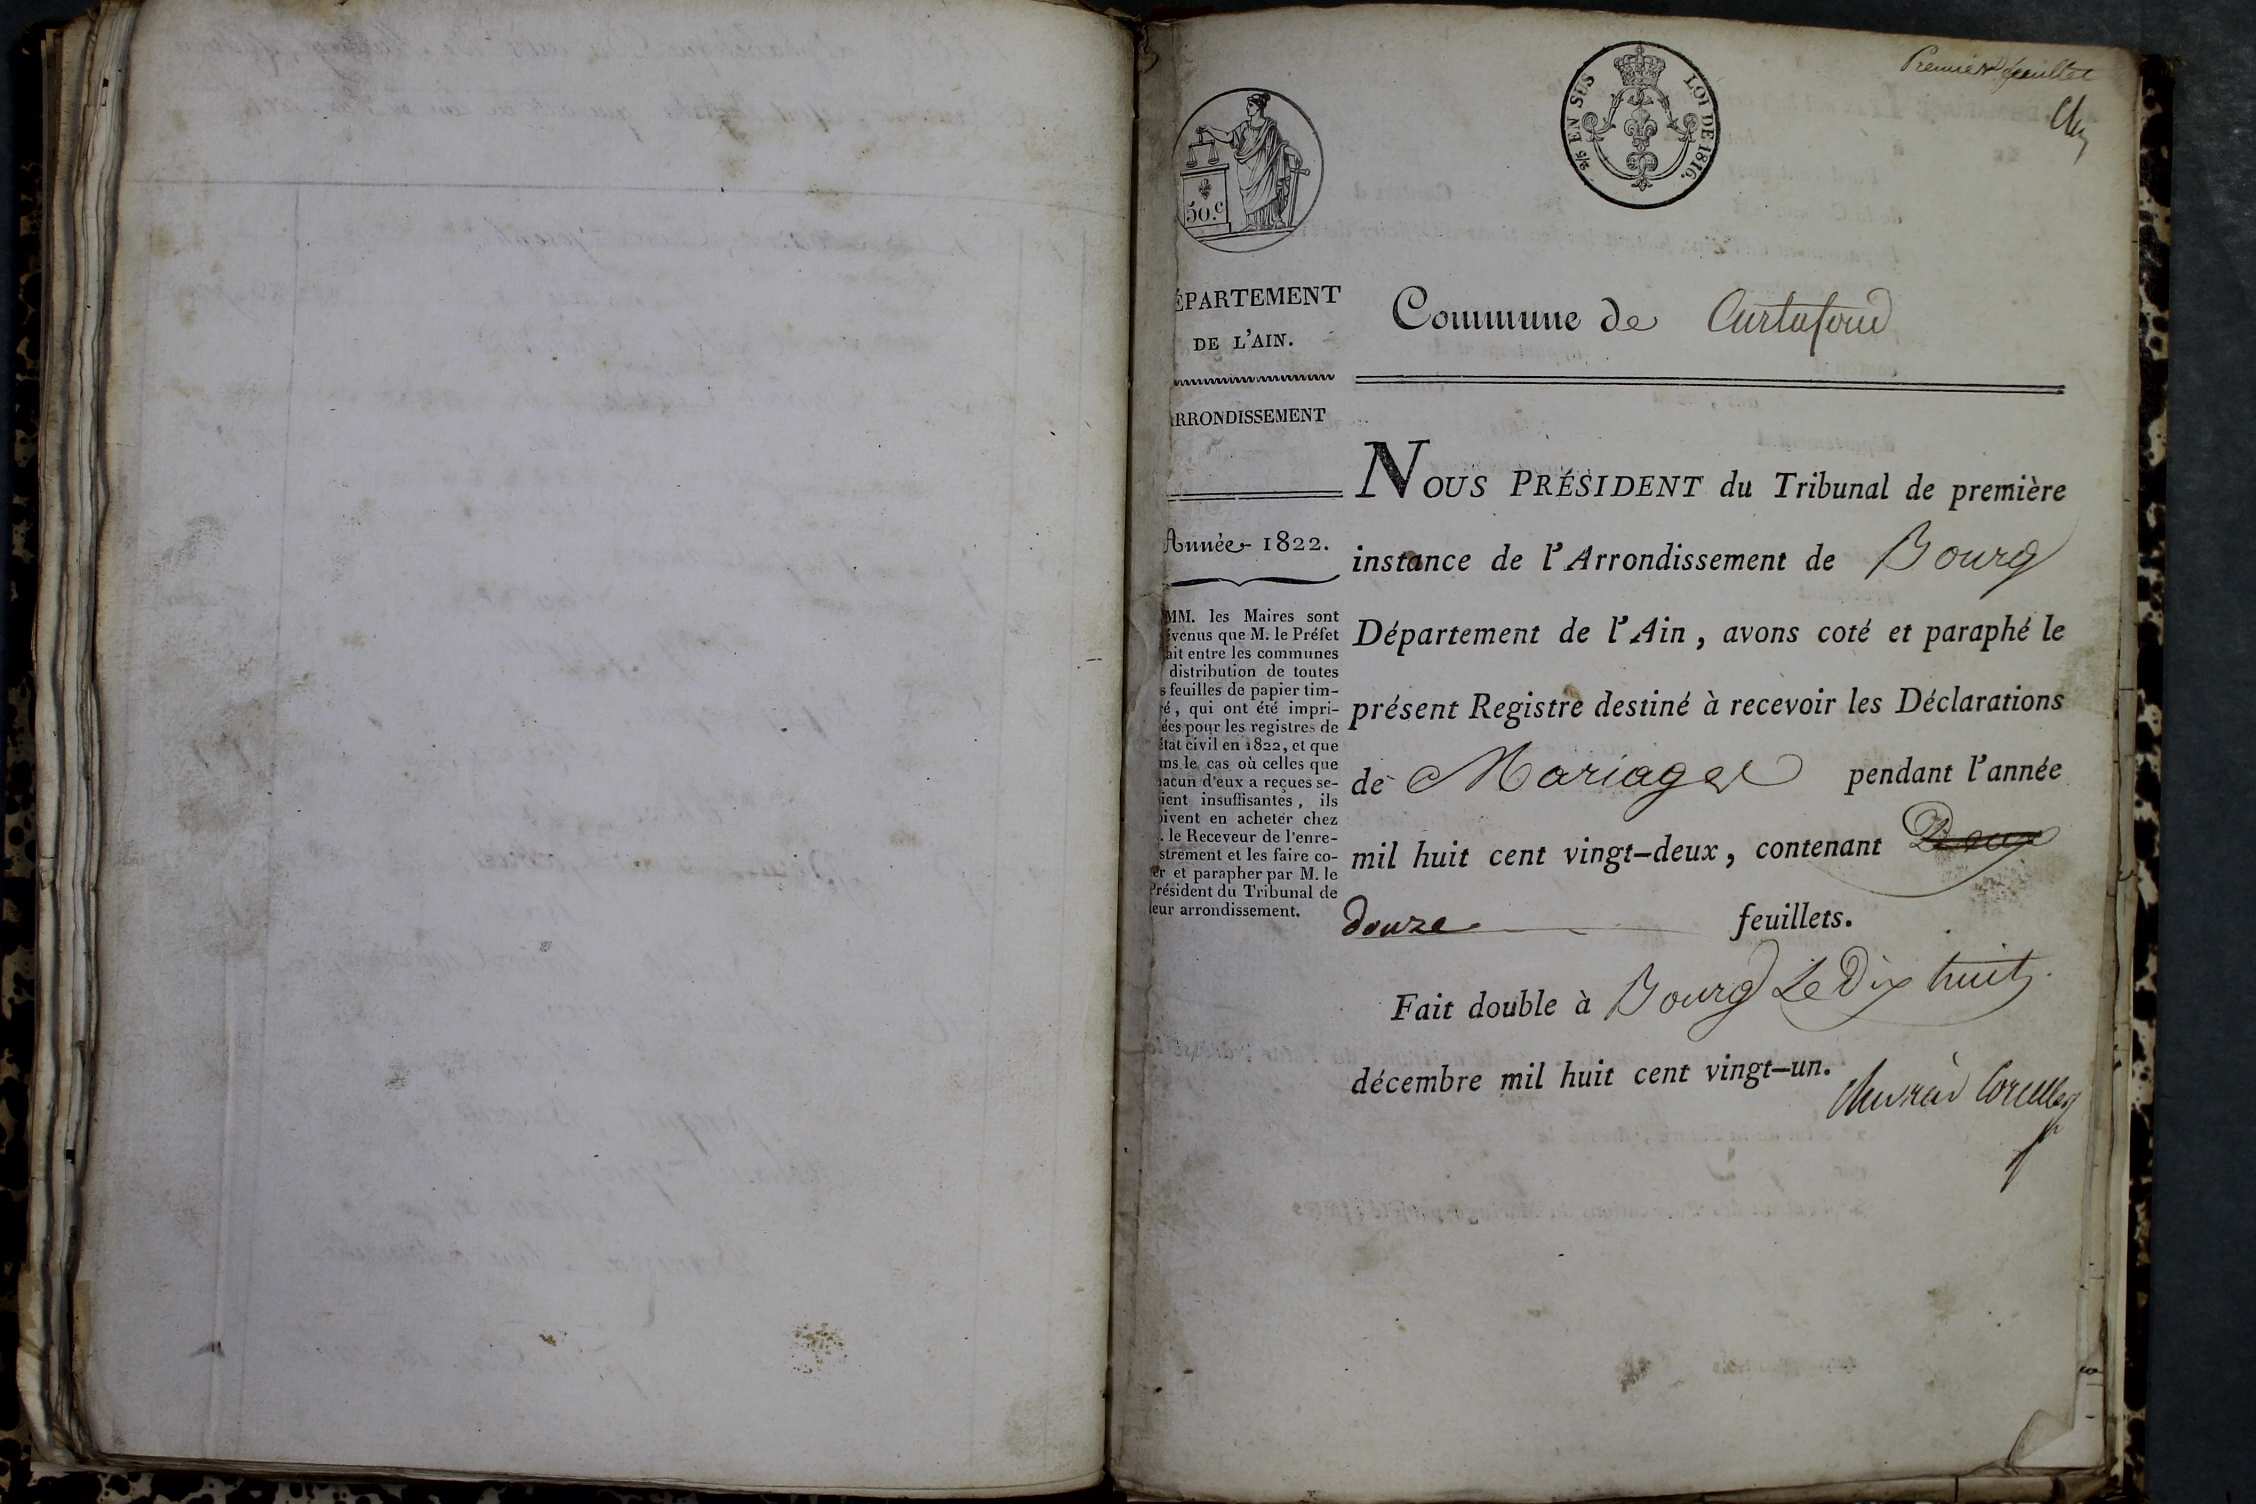 Premier feuillet
EN SUS
LOI DE 1816.
50.c
ÉPARTEMENT
DE L'AIN.
RRONDISSEMENT
Année 1822.
MM. les Maires sont
évenus que M. le Préfet
ait entre les communes
distribution de toutes
s feuilles de papier tim-
ré, qui ont été impri-
ées pour les registres de
état civil en 1822, et que
ans le cas où celles que
hacun d'eux a reçues se-
oient insuffisantes, ils
oivent en acheter chez
. le Receveur de l'enre-
strement et les faire co-
er et parapher par M. le
Président du Tribunal de
leur arrondissement.
Commune de Curtafond
NOUS PRÉSIDENT du Tribunal de première
instance de l'Arrondissement de Bourg
Département de l'Ain, avons coté et paraphé le
présent Registre destiné à recevoir les Déclarations
de Mariages pendant l'année
mil huit cent vingt-deux, contenant Deux
douze feuillets.
Fait double à Bourg Le Dix huit
décembre mil huit cent vingt-un.